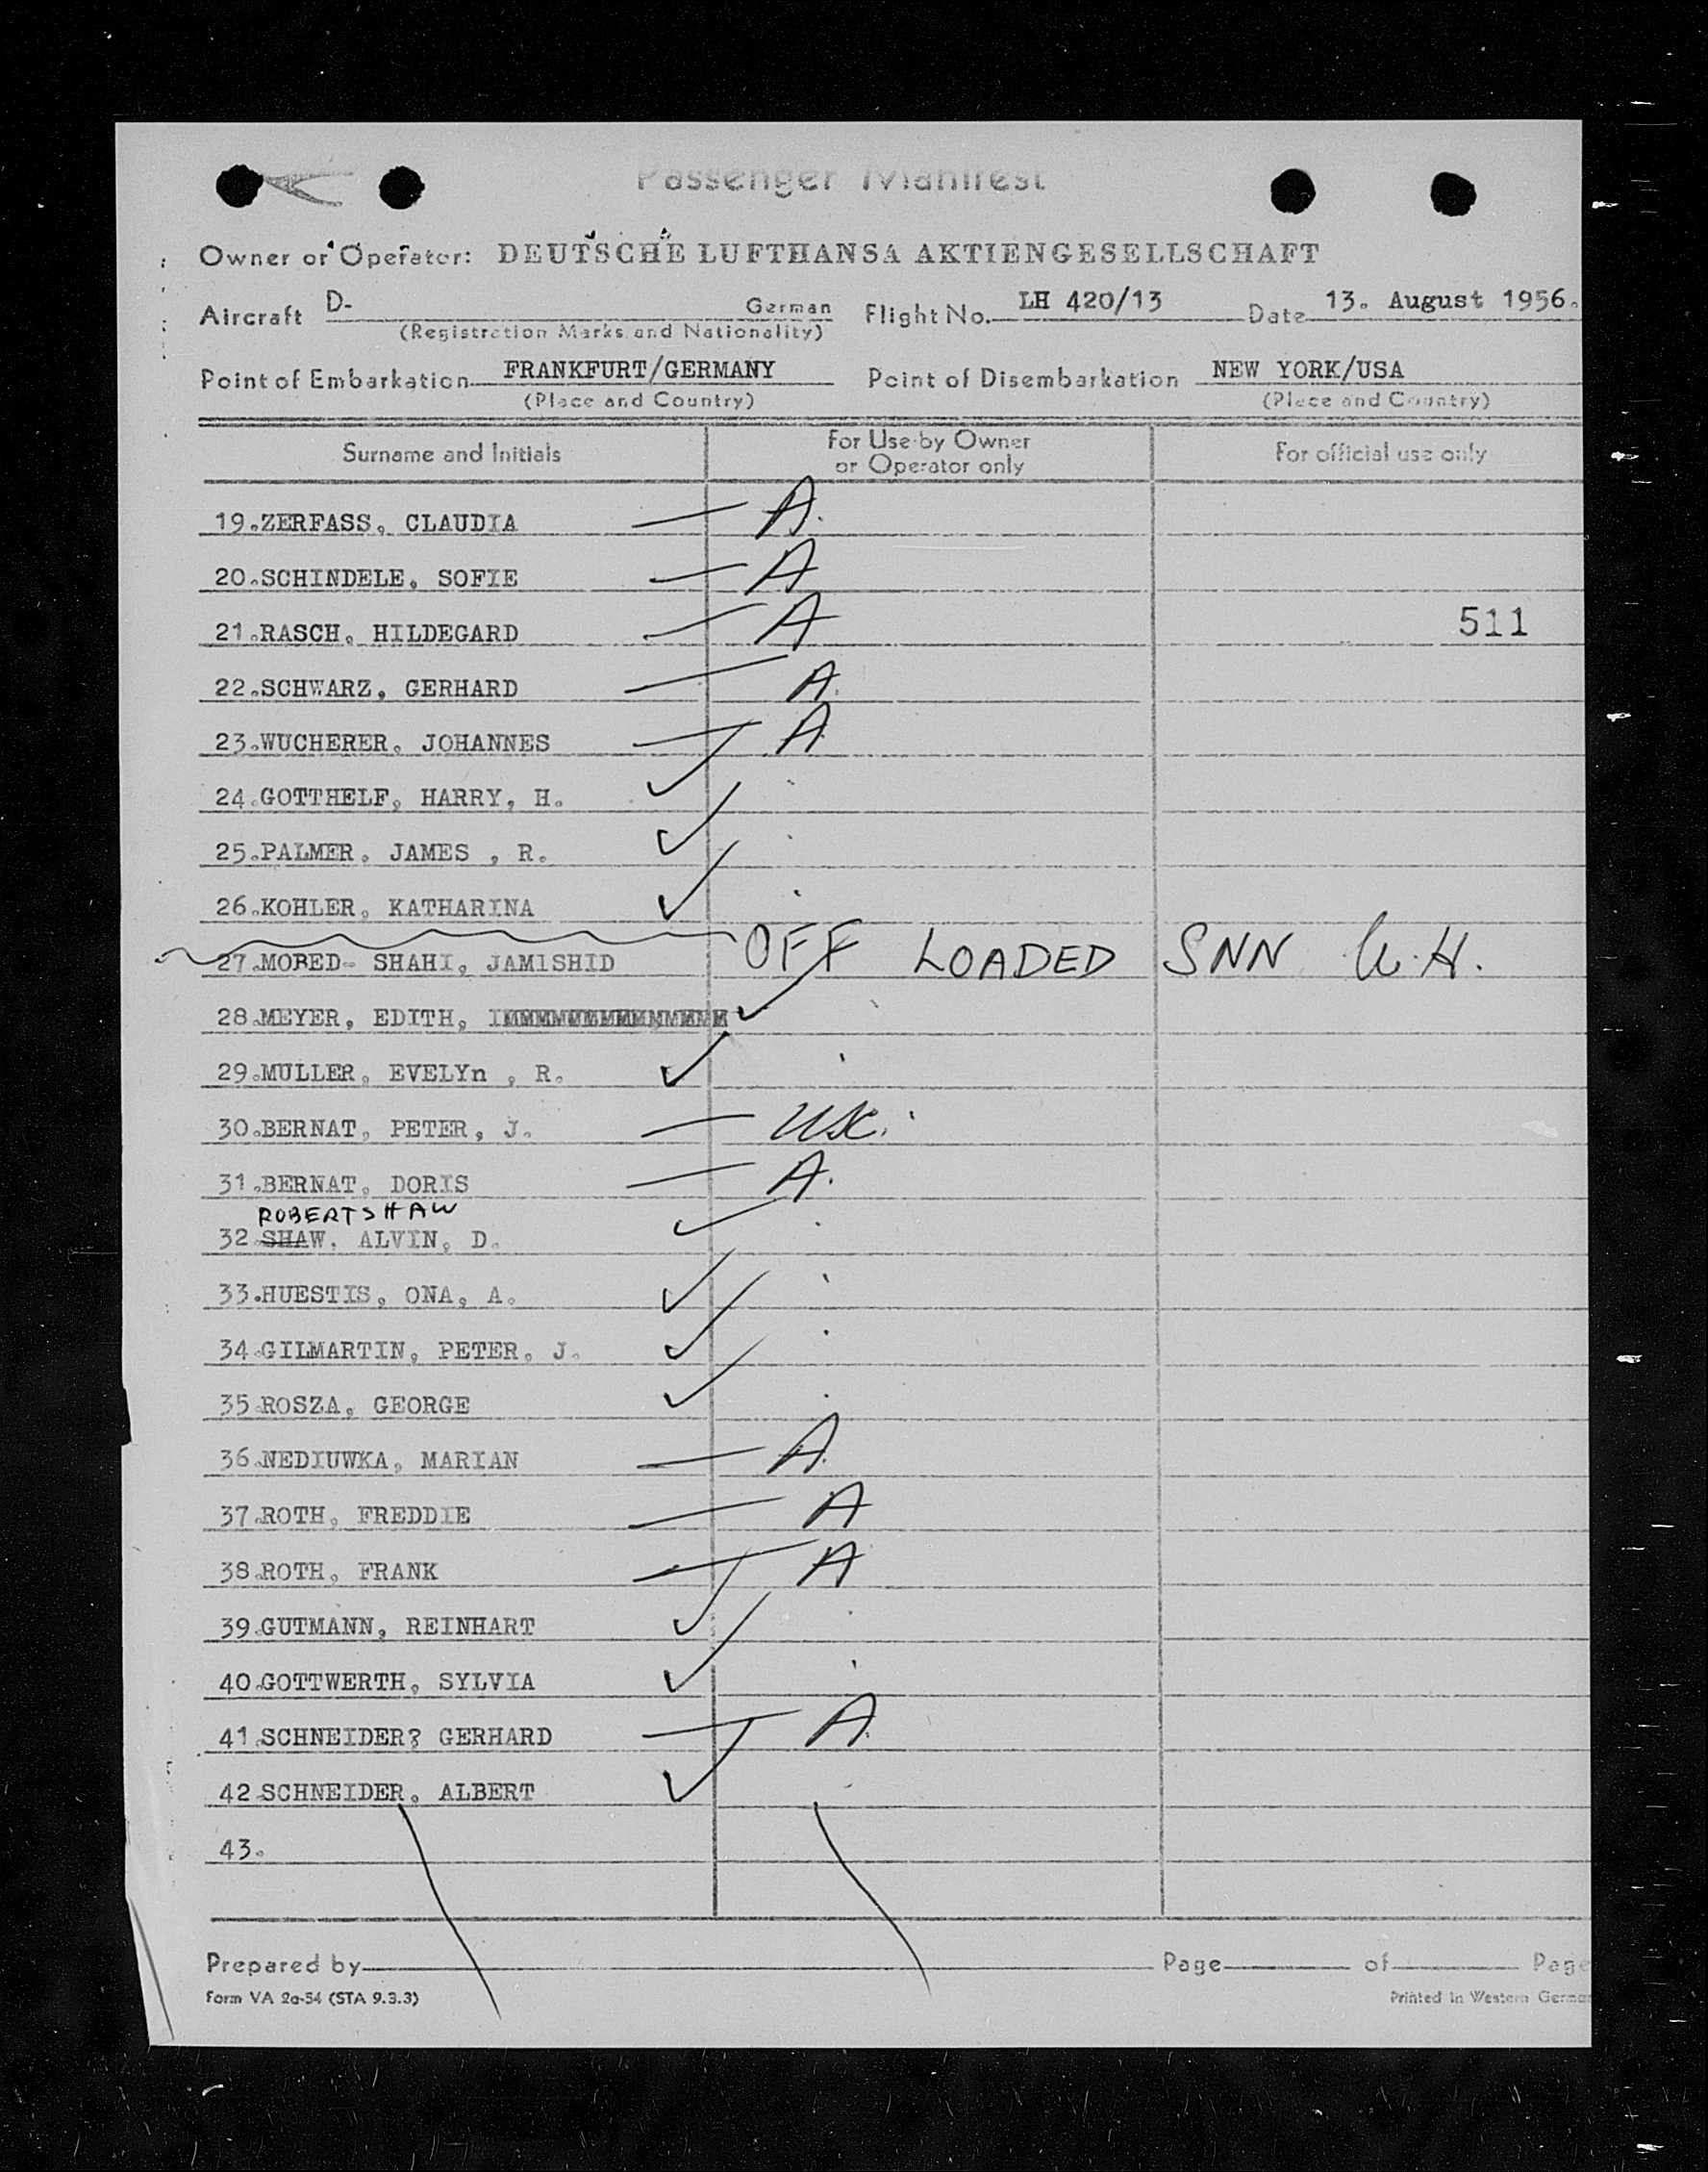 Passenger Manifest
Owner or Operator: DEUTSCHE LUFTHANSA AKTIENGESELLSCHAFT
Aircraft D- German Flight No. LH 420/13 Date 13. August 1956.
(Registration Marks and Nationality)
Point of Embarkation FRANKFURT/GERMANY Point of Disembarkation NEW YORK/USA
(Place and Country) (Place and Country)
Surname and Initials For Use by Owner or Operator only For official use only
19.ZERFASS, CLAUDIA — A.
20.SCHINDELE, SOFIE — A
21.RASCH, HILDEGARD — A 511
22.SCHWARZ, GERHARD — A.
23.WUCHERER, JOHANNES — A
24.GOTTHELF, HARRY, H. ✓
25.PALMER, JAMES , R. ✓
26.KOHLER, KATHARINA ✓
27.MOBED- SHAHI, JAM1SHID OFF LOADED SNN W.H.
28.MEYER, EDITH, ✓
29.MULLER, EVELYn , R. ✓
30.BERNAT, PETER, J. — USC.
31.BERNAT, DORIS — A.
ROBERTSHAW
32.SHAW, ALVIN, D. ✓
33.HUESTIS, ONA, A. ✓
34.GILMARTIN, PETER, J. ✓
35.ROSZA, GEORGE ✓
36.NEDIUWKA, MARIAN — A.
37.ROTH, FREDDIE — A
38.ROTH, FRANK — A
39.GUTMANN, REINHART ✓
40.GOTTWERTH, SYLVIA ✓
41.SCHNEIDER? GERHARD — A.
42.SCHNEIDER, ALBERT ✓
43.
Prepared by Page of Page
Form VA 2a-54 (STA 9.3.3) Printed in Western German